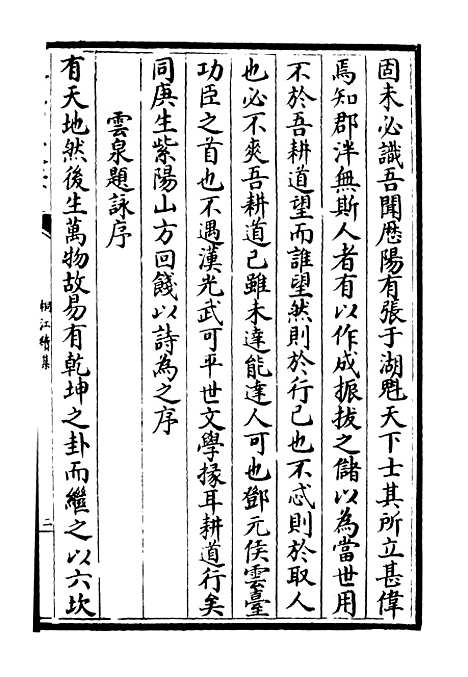 固未必識吾聞厯陽有張于湖魁天下士其所立甚偉
焉知郡泮無斯人者有以作成振拔之儲以為當世用
不於吾耕道望而誰望然則於行己也不忒則於取人
也必不爽吾耕道己雖未達能達人可也鄧元侯雲臺
功臣之首也不遇漢光武可平世文學掾耳耕道行矣
同庚生紫陽山方回餞以詩為之序
雲泉題詠序
有天地然後生萬物故易有乾坤之卦而繼之以六坎
桐江續集
二